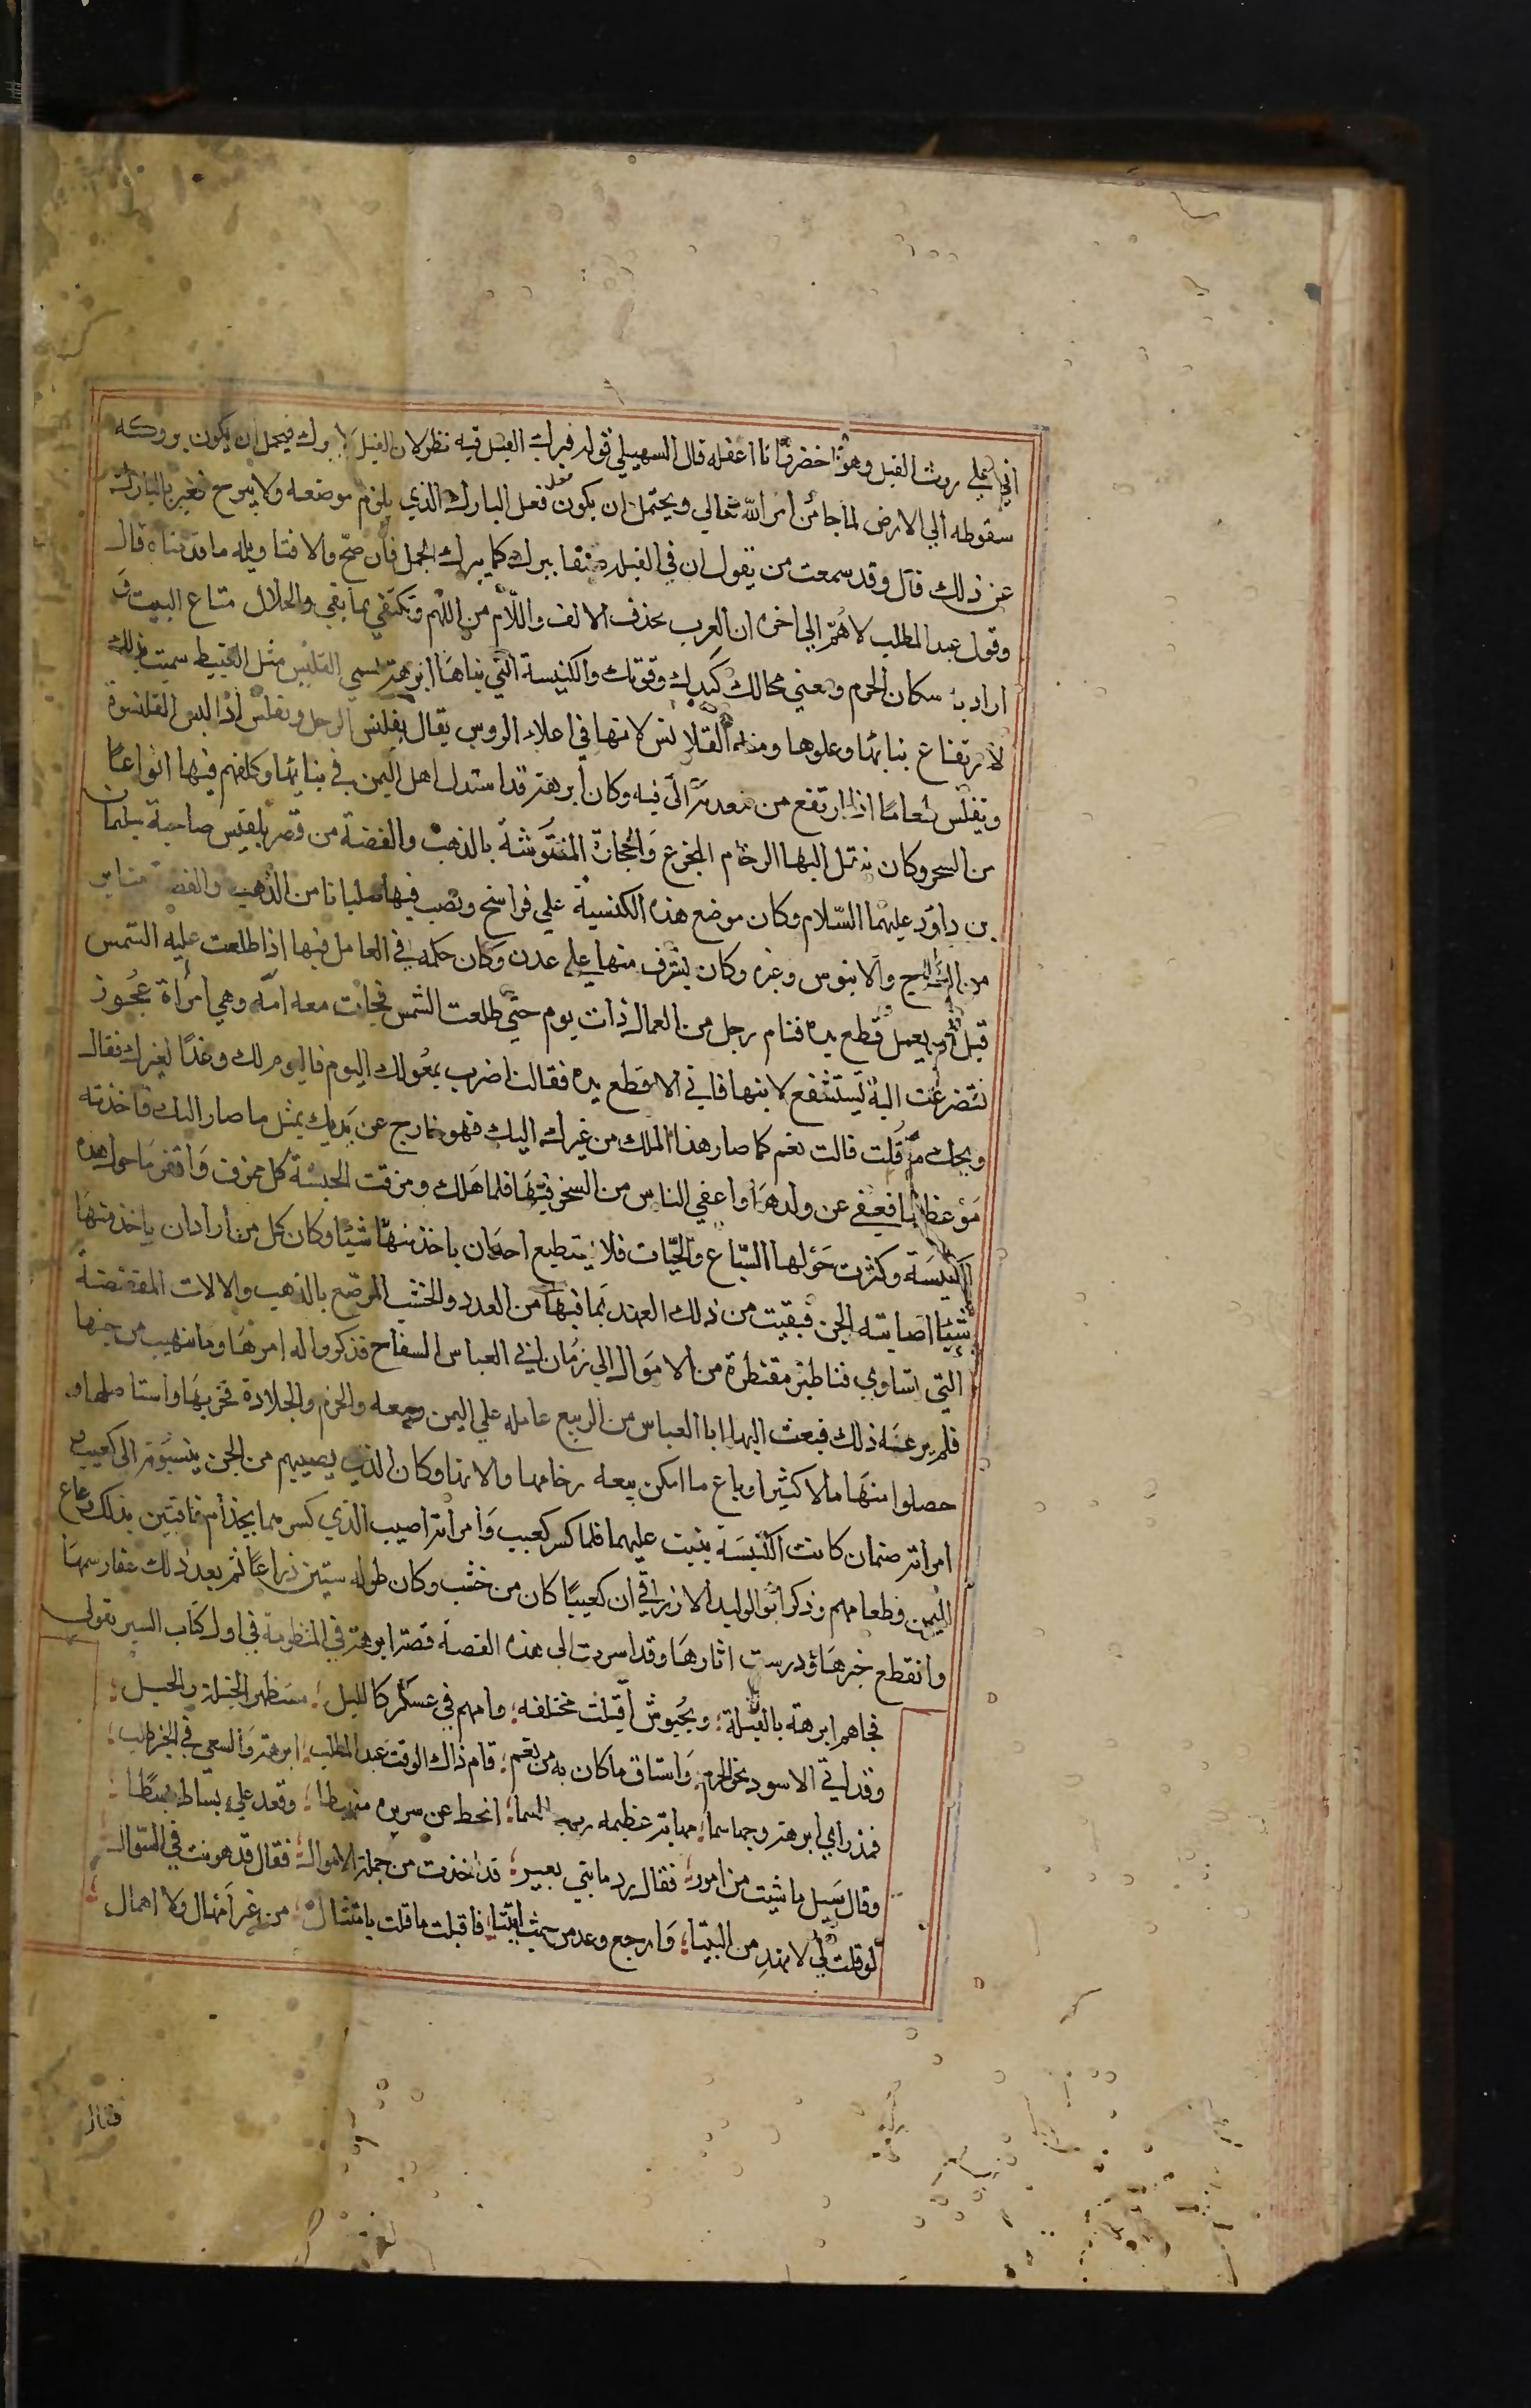 اتي علي روث الفيل وهو اخضر انا اعقله قال السهيلي قوله فبرك الفيل فيه نظر لان الفيل لا يبرك فيحمل ان يكون بروكه
سقوطه الي الارض لما جا من امر الله تعالي ويحتمل ان يكون فعل فعل البارك الذي يلزم موضعه ولا يبرح فعبر بالبارك
عن ذلك قال وقد سمعت من يقول ان في الفيله صنفا يبرك كما يبرك الجمل فان صح والا فتاويله ما قدمناه قال
وقول عبد المطلب لاهم الي اخره ان العرب تحذف الالف واللام من اللهم وتكتفي بما بقي والحلال متاع البيت
اراد به سكان الحرم ومعني محالك كيدك وقوتك والكنيسة التي بناها ابرهة تسمي القليس مثل القبيط سميت بذلك
لارتفاع بنائها وعلوها ومنه القلانس لانها في اعلاء الروس يقال تقلنس الرجل وتقلس اذا لبس القلنسوة
وتقلس طعاما اذا ارتفع من معدته الي فيه وكان ابرهة قد استذل اهل اليمن في بنائها وكلفهم فيها انواعا
من السحر وكان ينقل اليها الرخام المجزع والحجارة المنقوشة بالذهب والفضة من قصر بلقيس صاحبة سليمان
بن داود عليهما السلام وكان موضع هذه الكنسية علي فراسخ ونصب فيها صلبانا من الذهب والفضة منابر
من العاج والابنوس وغيره وكان يشرف منها علي عدن وكان حكمه في العامل فيها اذا طلعت عليه الشمس
قبل ان يعمل قطع يده فنام رجل من العمال ذات يوم حتي طلعت الشمس فجات معه امه وهي امراة عجوز
فتضرعت اليه تستشفع لابنها فابي الا قطع يده فقالت اضرب بمعولك اليوم فاليوم لك وغدا لغيرك فقال
ويحك ما قلت قالت نعم كما صار هذا الملك من غيرك اليك فهو خارج عن يديك بمثل ما صار اليك فاخذته
موعظتها فعفي عن ولدها واعفي الناس من السخر فيها فلما هلك ومزقت الحبشة كل ممزق واقفر ما حول هذه
الكنيسة وكثرت حولها السباع والحيات فلا يستطيع احد ان ياخذ منها شيئا وكان كل من اراد ان ياخذ منها
شيئا اصابته الجن فبقيت من ذلك العهد بما فيها من العدد والخشب المرصع بالذهب والالات المفضضة
التي تساوي قناطير مقنطرة من الاموال الي زمان ابي العباس السفاح فذكروا له امرها وما يتهيب من جنها
فلم يرعه ذلك فبعث اليها ابا العباس من الربيع عامله علي اليمن ومعه والحزم والجلادة فخربها واستاصلها و
حصلوا منها مالا كثيرا وباع ما امكن بيعه رخامها والاتها وكان الذي يصيبهم من الجن ينسبونه الي كعيب و
امراته صنمان كانت الكنيسة بنيت عليهما فلما كسر كعيب وامراته اصيب الذي كسرهما بجذام فافتتن بذلك رعاع
اليمن وطعامهم وذكر ابو الوليد الازرقي ان كعيبا كان من خشب وكان طوله ستين ذراعا ثم بعد ذلك عفا رسمها
وانقطع خبرها ودرست اثارها وقد اسردت الي هذه القصة قصة ابرهة في المنظومة في اول كتاب السير بقولي
فجاهم ابرهة بالفيلة ؛ وجيوش اقبلت مختلفه ؛ وامهم في عسكر كالليل ؛ مستظهرا بخيله والخيل ؛
وقد اتي الاسود نحو الحرم ؛ واستاق ما كان به من نعم ؛ قام ذاك الوقت عبد المطلب ؛ ابرهة والسعي في الخير طلب ؛
فمذ راي ابرهة وجها سما ؛ مهابة عظيمه رب السما ؛ انحط عن سريره منهبطا ؛ وقعد علي بساط بسطا ؛
وقال سيل ما شيت من امور ؛ فقال رد مايتي بعير ؛ قد اخذت من جملة الاموال ؛ فقال قد هونت في السوال
لو قلت لي لا تهد من البيتا ؛ وارجع وعد من حيث اتيتا ؛ فاقبلت ما قلت بامتثال ؛ من غير امهال ولا اهمال ؛
فقال